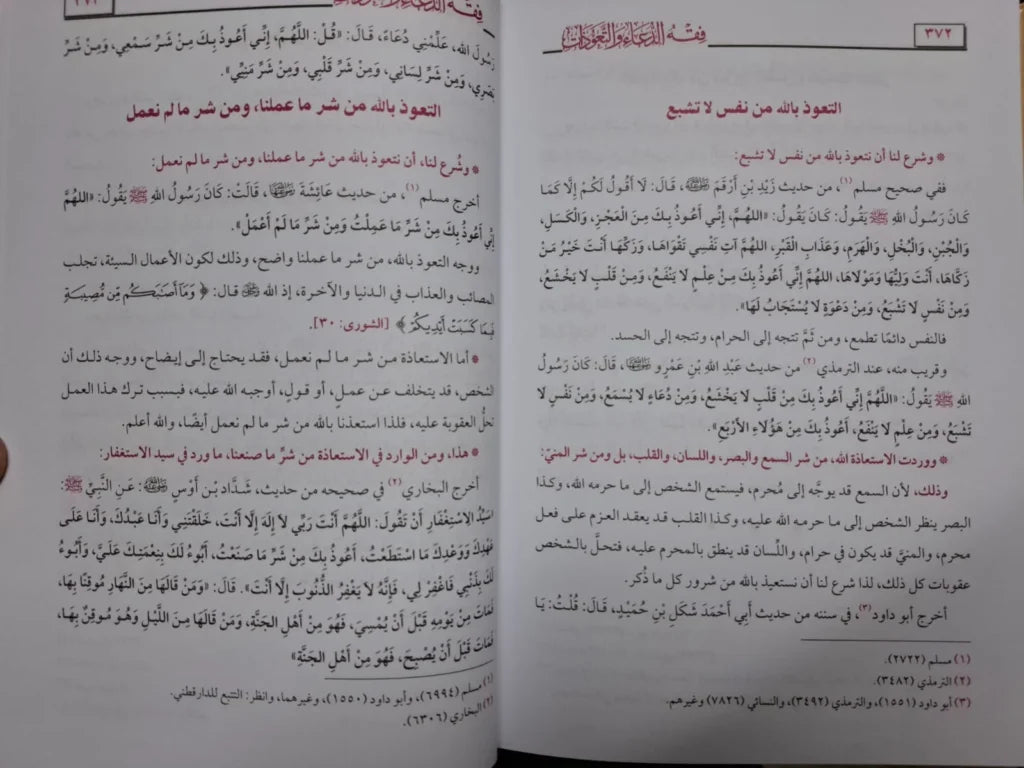 ٣٧٢
فِقْهُ الدُّعَاءِ وَالتَّعَوُّذَاتِ
التعوذ بالله من نفس لا تشبع
* وشرع لنا أن نتعوذ بالله من نفس لا تشبع:
ففي صحيح مسلم(١)، من حديث زَيْدِ بْنِ أَرْقَمَ رضي الله عنه، قَالَ: لَا أَقُولُ لَكُمْ إِلَّا كَمَا
كَانَ رَسُولُ اللهِ ﷺ يَقُولُ: كَانَ يَقُولُ: «اللهُمَّ، إِنِّي أَعُوذُ بِكَ مِنَ الْعَجْزِ، وَالْكَسَلِ،
وَالْجُبْنِ، وَالْبُخْلِ، وَالْهَرَمِ، وَعَذَابِ الْقَبْرِ، اللهُمَّ آتِ نَفْسِي تَقْوَاهَا، وَزَكِّهَا أَنْتَ خَيْرُ مَنْ
زَكَّاهَا، أَنْتَ وَلِيُّهَا وَمَوْلَاهَا، اللهُمَّ إِنِّي أَعُوذُ بِكَ مِنْ عِلْمٍ لَا يَنْفَعُ، وَمِنْ قَلْبٍ لَا يَخْشَعُ،
وَمِنْ نَفْسٍ لَا تَشْبَعُ، وَمِنْ دَعْوَةٍ لَا يُسْتَجَابُ لَهَا».
فالنفس دائمًا تطمع، ومن ثَمَّ تتجه إلى الحرام، وتتجه إلى الحسد.
وقريب منه، عند الترمذي(٢) من حديث عَبْدِ اللهِ بْنِ عَمْرٍو رضي الله عنه، قَالَ: كَانَ رَسُولُ
اللهِ ﷺ يَقُولُ: «اللَّهُمَّ إِنِّي أَعُوذُ بِكَ مِنْ قَلْبٍ لَا يَخْشَعُ، وَمِنْ دُعَاءٍ لَا يُسْمَعُ، وَمِنْ نَفْسٍ لَا
تَشْبَعُ، وَمِنْ عِلْمٍ لَا يَنْفَعُ، أَعُوذُ بِكَ مِنْ هَؤُلَاءِ الأَرْبَعِ».
* ووردت الاستعاذة الله، من شر السمع والبصر، واللسان، والقلب، بل ومن شر المنيّ:
وذلك، لأن السمع قد يوجَّه إلى مُحرم، فيستمع الشخص إلى ما حرمه الله، وكذا
البصر ينظر الشخص إلى ما حرمه الله عليه، وكذا القلب قد يعقد العزم على فعل
محرم، والمنيّ قد يكون في حرام، واللِّسان قد ينطق بالمحرم عليه، فتحلَّ بالشخص
عقوبات كل ذلك، لذا شرع لنا أن نستعيذ بالله من شرور كل ما ذُكر.
أخرج أبو داود(٣)، في سننه من حديث أَبِي أَحْمَدَ شَكَلِ بْنِ حُمَيْدٍ، قَالَ: قُلْتُ: يَا
(١) مسلم (٢٧٢٢).
(٢) الترمذي (٣٤٨٢).
(٣) أبو داود (١٥٥١)، والترمذي (٣٤٩٢)، والنسائي (٧٨٢٦) وغيرهم.
فِقْهُ الدُّعَاءِ وَالتَّعَوُّذَاتِ
رَسُولَ اللهِ، عَلِّمْنِي دُعَاءً، قَالَ: «قُلْ: اللَّهُمَّ، إِنِّي أَعُوذُ بِكَ مِنْ شَرِّ سَمْعِي، وَمِنْ شَرِّ
بَصَرِي، وَمِنْ شَرِّ لِسَانِي، وَمِنْ شَرِّ قَلْبِي، وَمِنْ شَرِّ مَنِيِّي».
التعوذ بالله من شر ما عملنا، ومن شر ما لم نعمل
* وشُرع لنا، أن نتعوذ بالله من شر ما عملنا، ومن شر ما لم نعمل:
أخرج مسلم(١)، من حديث عَائِشَةَ رضي الله عنها، قَالَتْ: كَانَ رَسُولُ اللهِ ﷺ يَقُولُ: «اللهُمَّ
إِنِّي أَعُوذُ بِكَ مِنْ شَرِّ مَا عَمِلْتُ وَمِنْ شَرِّ مَا لَمْ أَعْمَلْ».
ووجه التعوذ بالله، من شر ما عملنا واضح، وذلك لكون الأعمال السيئة، تجلب
المصائب والعذاب في الدنيا والآخرة، إذ الله ﷻ قال: ﴿ وَمَا أَصَابَكُم مِّن مُّصِيبَةٍ
فَبِمَا كَسَبَتْ أَيْدِيكُمْ ﴾ [الشورى: ٣٠].
* أما الاستعاذة من شر ما لم نعمل، فقد يحتاج إلى إيضاح، ووجه ذلك أن
الشخص، قد يتخلف عن عملٍ، أو قولٍ، أوجبه الله عليه، فبسبب ترك هذا العمل
تحلُّ العقوبة عليه، فلذا استعذنا بالله من شر ما لم نعمل أيضًا، والله أعلم.
* هذا، ومن الوارد في الاستعاذة من شرِّ ما صنعنا، ما ورد في سيد الاستغفار:
أخرج البخاري(٢) في صحيحه من حديث، شَدَّاد بْن أَوْسٍ رضي الله عنه: عَنِ النَّبِيِّ ﷺ:
سَيِّدُ الِاسْتِغْفَارِ أَنْ تَقُولَ: اللَّهُمَّ أَنْتَ رَبِّي لَا إِلَهَ إِلَّا أَنْتَ، خَلَقْتَنِي وَأَنَا عَبْدُكَ، وَأَنَا عَلَى
عَهْدِكَ وَوَعْدِكَ مَا اسْتَطَعْتُ، أَعُوذُ بِكَ مِنْ شَرِّ مَا صَنَعْتُ، أَبُوءُ لَكَ بِنِعْمَتِكَ عَلَيَّ، وَأَبُوءُ
لَكَ بِذَنْبِي فَاغْفِرْ لِي، فَإِنَّهُ لَا يَغْفِرُ الذُّنُوبَ إِلَّا أَنْتَ». قَالَ: «وَمَنْ قَالَهَا مِنَ النَّهَارِ مُوقِنًا بِهَا،
فَمَاتَ مِنْ يَوْمِهِ قَبْلَ أَنْ يُمْسِيَ، فَهُوَ مِنْ أَهْلِ الجَنَّةِ، وَمَنْ قَالَهَا مِنَ اللَّيْلِ وَهُوَ مُوقِنٌ بِهَا،
فَمَاتَ قَبْلَ أَنْ يُصْبِحَ، فَهُوَ مِنْ أَهْلِ الجَنَّةِ»
(١) مسلم (٦٩٩٤)، وأبو داود (١٥٥٠)، وغيرهما، وانظر: التتبع للدارقطني.
(٢) البخاري (٦٣٠٦).